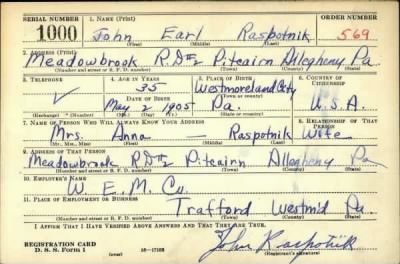 SERIAL NUMBER 1. NAME (Print) ORDER NUMBER
1000 John Earl Raspotnik 569
(First) (Middle) (Last)
2. ADDRESS (Print)
Meadowbrook R.D#2 Pitcairn Allegheny Pa.
(Number and street or R. F. D. number) (Town) (County) (State)
3. TELEPHONE 4. AGE IN YEARS 5. PLACE OF BIRTH 6. COUNTRY OF CITIZENSHIP
✓ 35 Westmoreland City
DATE OF BIRTH (Town or county)
May 2 1905 Pa. U.S.A.
(Exchange) (Number) (Mo.) (Day) (Yr.) (State or country)
7. NAME OF PERSON WHO WILL ALWAYS KNOW YOUR ADDRESS 8. RELATIONSHIP OF THAT PERSON
Mrs. Anna — Raspotnik Wife
(Mr., Mrs., Miss) (First) (Middle) (Last)
9. ADDRESS OF THAT PERSON
Meadowbrook R.D#2 Pitcairn Allegheny Pa
(Number and street or R. F. D. number) (Town) (County) (State)
10. EMPLOYER'S NAME
W. E. M. Co.
11. PLACE OF EMPLOYMENT OR BUSINESS
Trafford Westmld Pa.
(Number and street or R. F. D. number) (Town) (County) (State)
I AFFIRM THAT I HAVE VERIFIED ABOVE ANSWERS AND THAT THEY ARE TRUE.
REGISTRATION CARD
D. S. S. Form 1 (over) 16—17105 John Raspotnik
(Registrant's signature)